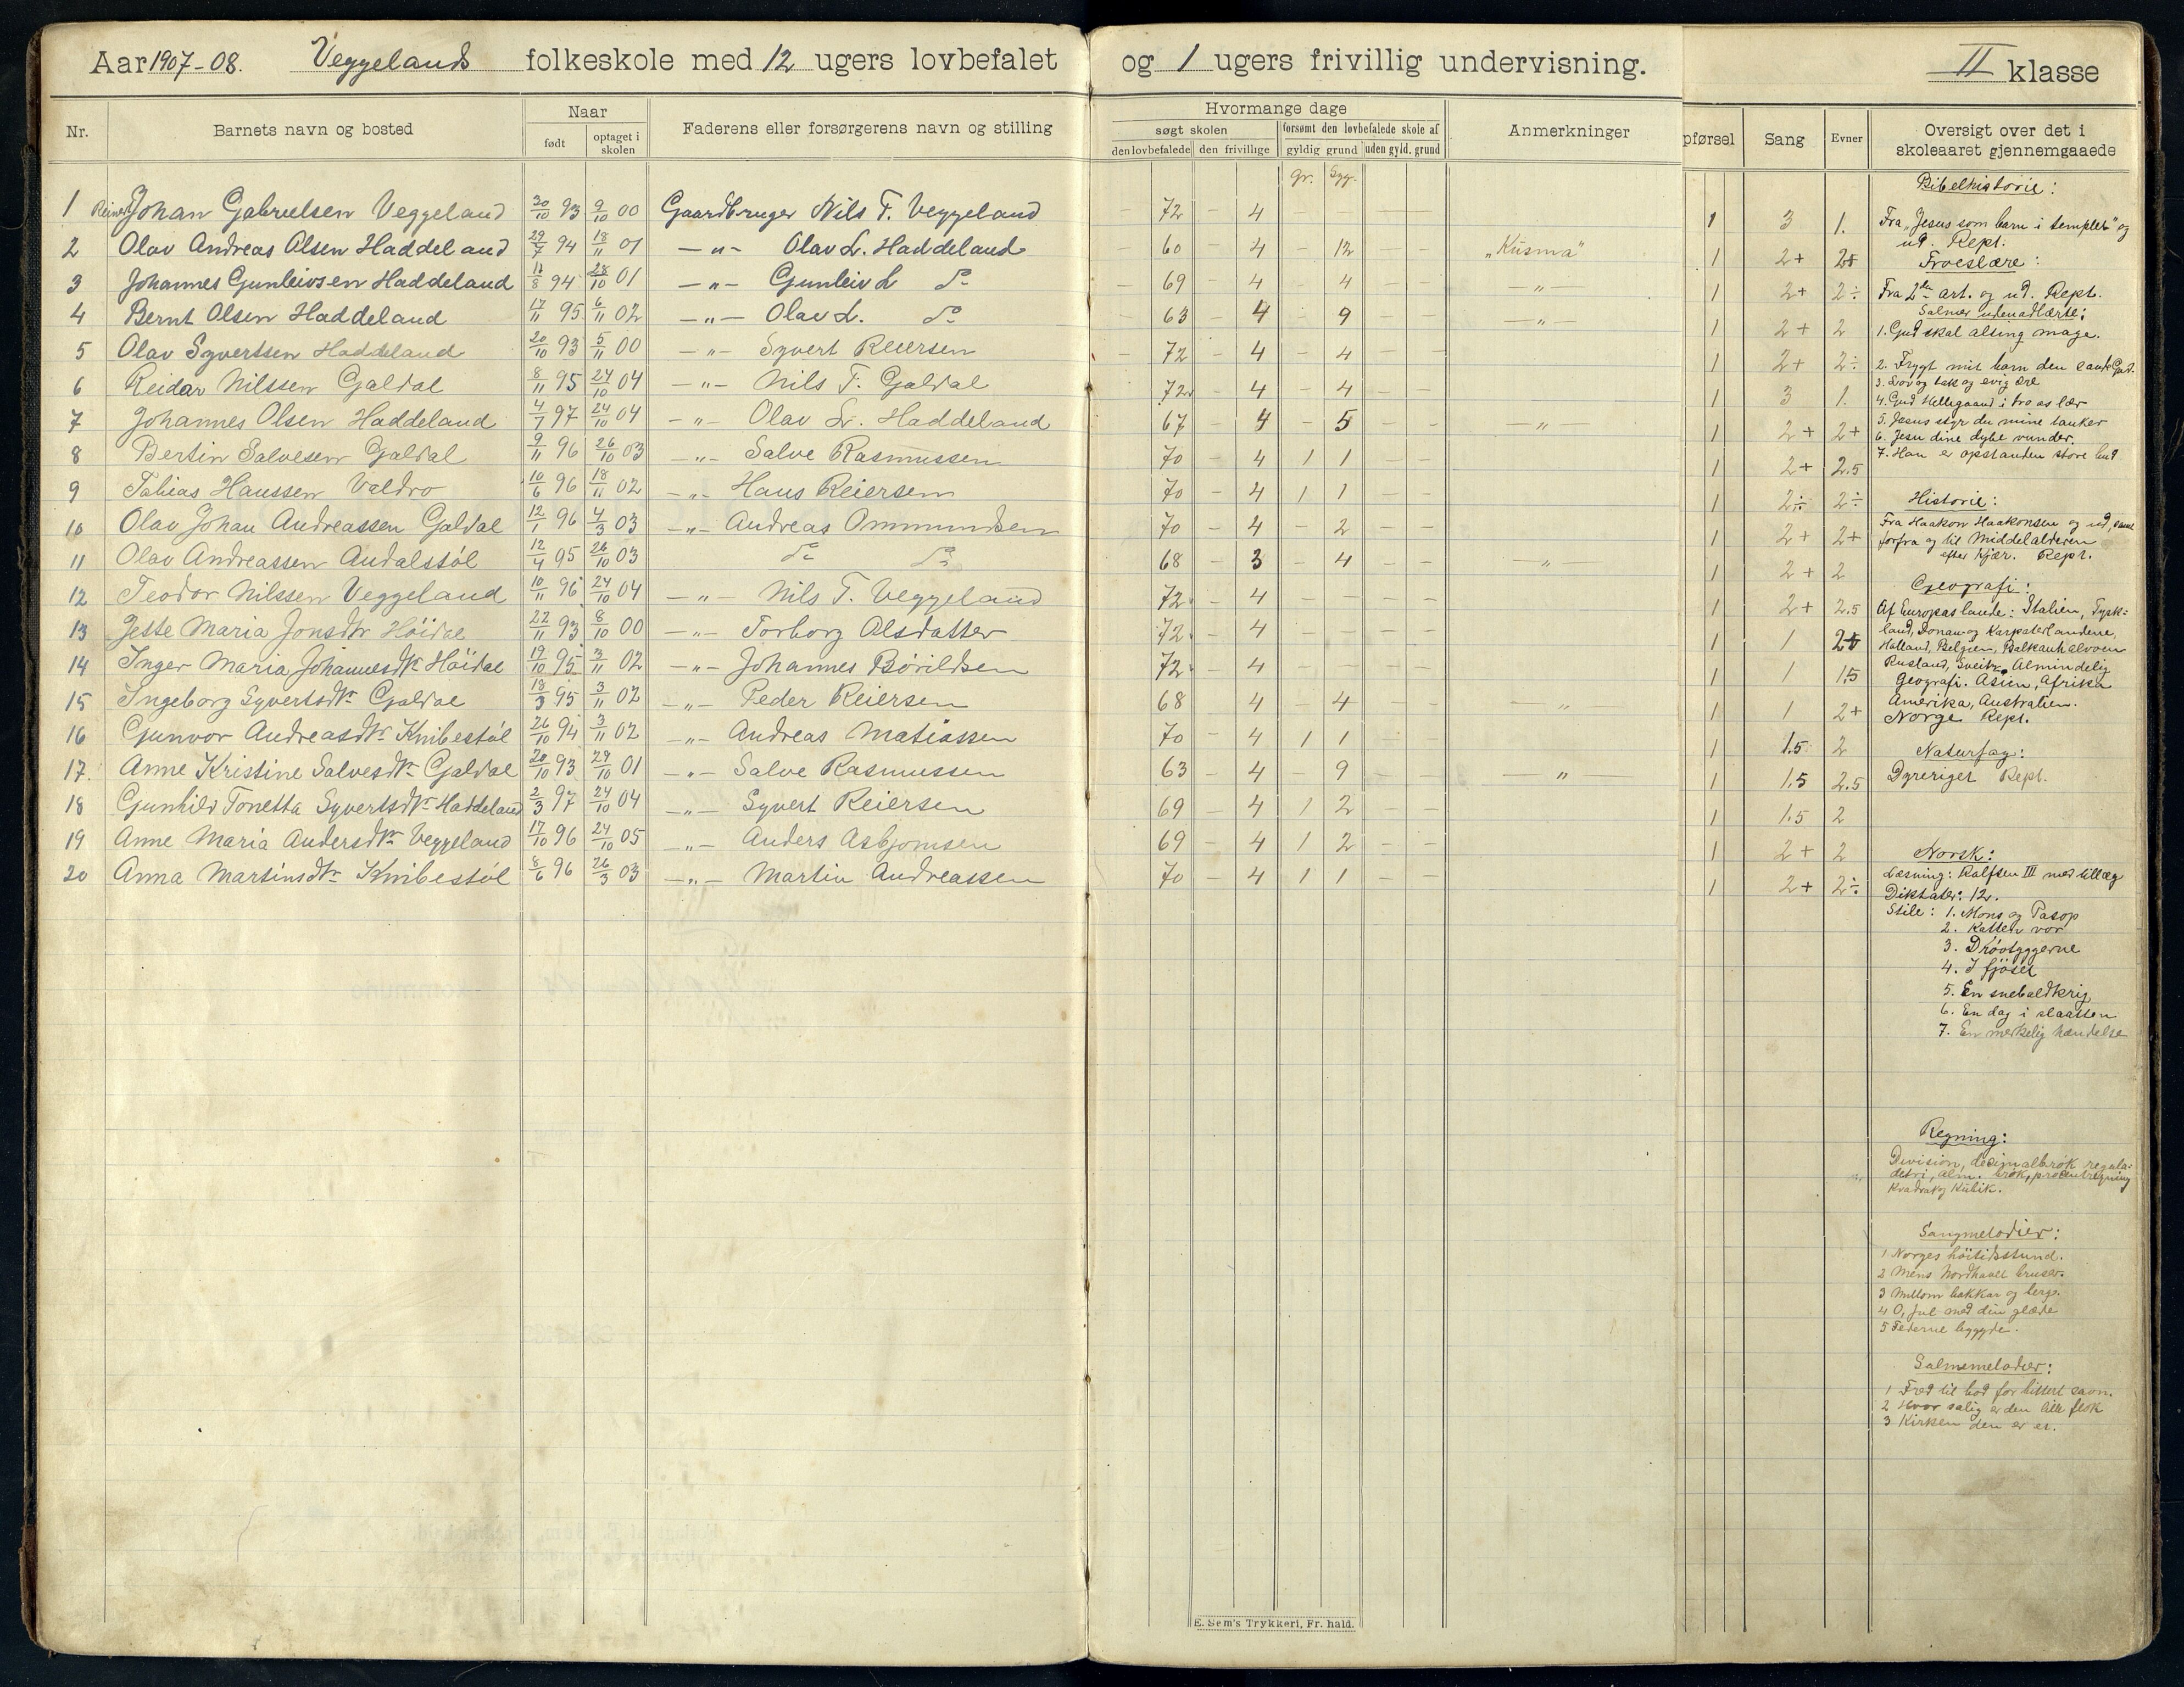 Aar 1907-08. Veggelands folkeskole med 12 ugers lovbefalet og 1 ugers frivillig undervisning. II klasse
Nr. Barnets navn og bosted Naar født optaget i skolen Faderens eller forsørgerens navn og stilling
Hvormange dage søgt skolen den lovbefalede den frivillige forsømt den lovbefalede skole af gyldig grund uden gyld. grund Anmerkninger
pførsel Sang Evner Oversigt over det i skoleaaret gjennemgaaede
gr. Syg.
1 Reinert Johan Gabrielsen Veggeland 20/10 93 9/10 00 Gaardbruger Nils T. Veggeland — 72 — 4 — — — — 1 3 1.
2 Olav Andreas Olsen Haddeland 29/7 94 18/11 01 — " — Olav L. Haddeland — 60 — 4 — 12 — — „Kusma" 1 2+ 2+
3 Johannes Gunleivsen Haddeland 11/8 94 28/10 01 — " — Gunleiv L do — 69 — 4 — 4 — — — " — 1 2+ 2÷
4 Bernt Olsen Haddeland 17/11 95 6/11 02 — " — Olav L. do — 63 — 4 — 9 — — — " — 1 2+ 2
5 Olav Syvertsen Haddeland 20/10 93 5/11 00 — " — Syvert Reiersen — 72 — 4 — 4 — — 1 2+ 2÷
6 Reidar Nilssen Galdal 8/11 95 24/10 04 — " — Nils F. Galdal 72 — 4 — 4 — — 1 3 1.
7 Johannes Olsen Haddeland 4/7 97 24/10 04 — " — Olav L. Haddeland 67 — 4 — 5 — — — " — 1 2+ 2+
8 Bertin Salvesen Galdal 9/11 96 26/10 03 — " — Salve Rasmussen 70 — 4 1 1 — — 1 2+ 2.5
9 Tobias Hanssen Valdro 10/6 96 18/11 02 — " — Hans Reiersen 70 — 4 1 1 — — 1 2÷ 2÷
10 Olav Johan Andreassen Galdal 12/1 96 4/3 03 — " — Andreas Ommundsen 70 — 4 — 2 — — 1 2+ 2+
11 Olav Andreassen Audalstøl 12/4 95 26/10 03 do do 68 — 3 — 4 — — — " — 1 2+ 2
12 Teodor Nilssen Veggeland 10/11 96 24/10 04 — " — Nils T. Veggeland 72 — 4 — — — — 1 2+ 2.5
13 Jette Maria Jonsdtr Høidal 22/11 93 8/10 00 — " — Torborg Olsdatter 72 — 4 — — — — 1 1 2+
14 Inger Maria Johannesdtr Høidal 19/10 95 3/11 02 — " — Johannes Børildsen 72 — 4 — — — — 1 1 1.5
15 Ingeborg Syvertsdtr Galdal 18/3 95 3/11 02 — " — Peder Reiersen 68 4 — 4 — — — " — 1 1 2+
16 Gunvor Andreasdtr Knibestøl 26/10 94 3/11 02 — " — Andreas Matiassen 70 — 4 1 1 — — 1 1.5 2
17. Anne Kristine Salvesdtr Galdal 20/10 93 29/10 01 — " — Salve Rasmussen 63 — 4 — 9 — — — " — 1 1.5 2.5
18 Gunhild Tonetta Syvertsdtr Haddeland 2/3 97 24/10 04 — " — Syvert Reiersen 69 4 1 2 — — 1 1.5 2
19 Anne Maria Andersdtr Veggeland 17/10 96 24/10 05 — " — Anders Asbjørnsen 69 — 4 1 2 — — 1 2+ 2
20 Anna Martinsdtr Knibestøl 8/6 96 26/3 03 — " — Martin Andreassen 70 — 4 1 1 — — 1 2+ 2÷
Bibelhistorie:
Fra „Jesus som barn i templet" og
ud. Rept.
Troeslære:
Fra 2den art. og ud. Rept.
Salmer udenadlærte:
1. Gud skal alting mage.
2. Frygt mit barn den sande Gud.
3. Lov og tak og evig ære
4. Gud Helligaand i tro os lær
5. Jesus styr du mine tanker
6. Jesu dine dybe vunder.
7. Han er opstanden store bud
Historie:
Fra Haakon Haakonsen og ud, samt
forfra og til Middelalderen
efter hjær. Rept.
Geografi:
Af Europas lande: Italien, Tysk-
land, Donau og Karpaterlandene,
Holland, Belgien, Balkanhalvøen
Rusland, Sveitz. Almindelig
Geografi. Asien, Afrika
Amerika, Australien.
Norge Rept.
Naturfag:
Dyreriget Rept.
Norsk:
Læsning: Rolfsen III med tillæg
Diktater: 12.
Stile: 1. Mons og Pasop
2. Katten vor
3. Drøvtyggerne
4. I fjøset
5. En snebaldkrig
6. En dag i slaatten
7. En merkelig hændelse
Regning:
Division, desimalbrøk regula-
detri, alm. brøk, procentregning
Kvadrat og Kubik.
Sangmelodier:
1 Norges høitidsstund.
2 Mens Nordhavet bruser.
3 Millom bakkar og berg.
4 O, Jul med din glæde
5 Federne byggede.
Salmemelodier:
1 Fred til bod for bittert savn.
2 Hvor salig er den lille flok
3 Kirken den er et.
E. Sem's Trykkeri, Fr. hald.